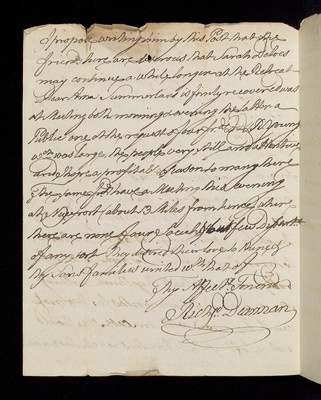 I propose writing him by this Post that the
friends here are desirous that Sarah Delves
may continue a while longer at the Retreat
Dear Ann Summerland is finely recovered was
at Meeting both morning & evening the latter a
Public one at the request of our fr.d
wch was large, the people very still and attentive
and there a profitable Season to many there
the same fr.d have a Meeting this evening
at Newport about 13 Miles from hence, where
there are none of our Society & but few Dissenters
of any sort They desired their love to thine &
thy Sons families united wth that of
Thy Affec.t Friend
Rich.d Dearman